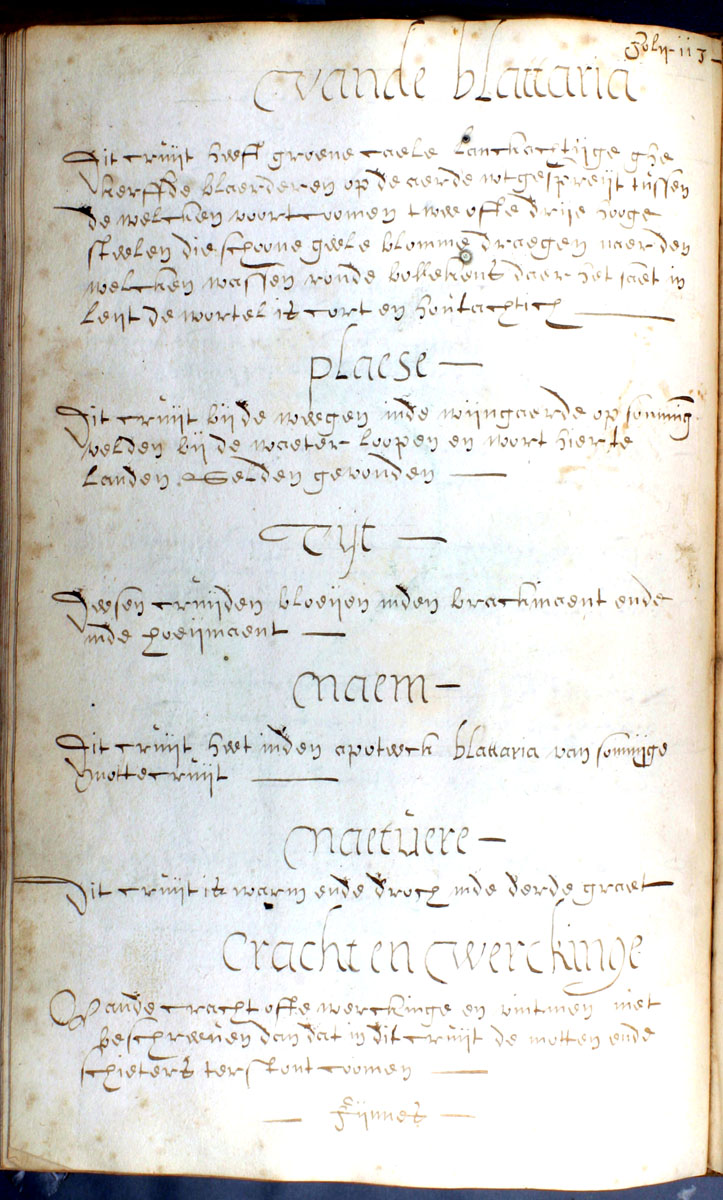 Folii - 113 -
vande blattaria
Dit crŭijt heeft groene caele lanckachtijge ghe
kerffde blaerderen op de aerde wtgespreijt tŭssen
de welcken voortcoomen twee offe drije hooge
steelen die schoone geele blomme draegen naer den
welcken wassen ronde bollekens daer het saet in
leijt de wortel is cort en hoŭtachtich —
plaese —
Dit crŭijt bij de weegen inde wijngaerde op somming
velden bij de waeter loopen en wort hier te
landen Selden gevonden —
Tijt —
Deesen crŭijden bloeijen inden brackmaent ende
inde hoeijmaent —
Naem —
Dit crŭijt heet inden apoteeck blattaria van sommijge
mottecrŭijt —
Naetŭere —
Dit crŭijt is warm ende drooch inde derde graet
Cracht en werckinge
Vande cracht offe werckinge en vintmen niet
beschreeŭen dan dat in dit crŭijt de motten ende
schieters terstont coomen —
— Fijnnes —